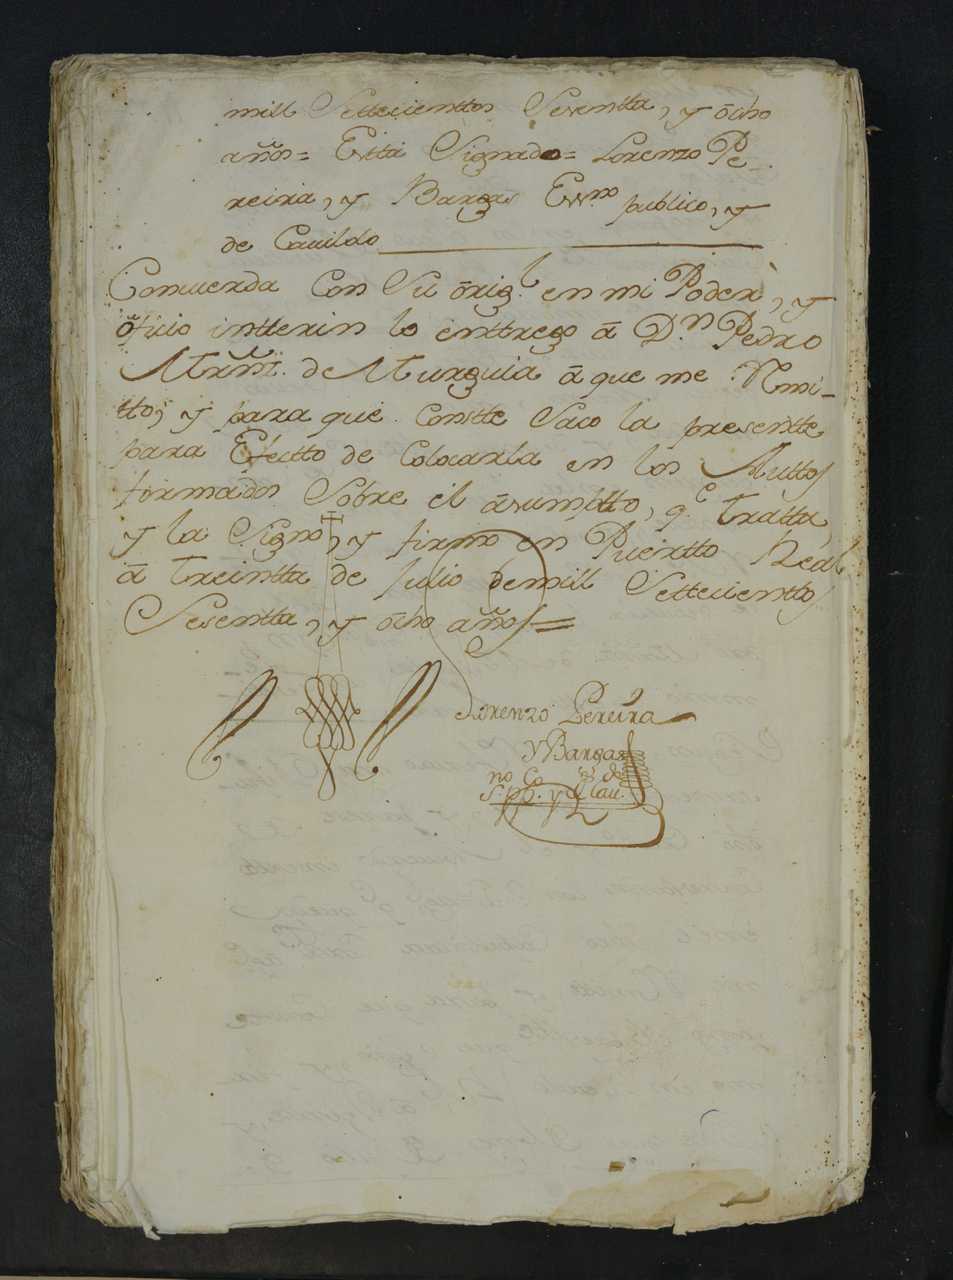 mill Settecienttos Sesentta, y ocho
años= Estta Signado= Lorenzo Pe-
reira, y Bargas Essno. publico, y
de Cauildo
Concuerda Con Su orig.l en mi Poder, y
oficio intterin lo enttrego á D.n Pedro
Mrñz. de Murguia á que me Rmi-
tto, y para que Constte Saco la presentte
para Efectto de Colocarla en los Auttos
formados Sobre el asumptto, q.e tratta,
y la Signo, y firmo en Puertto Real
á treintta de Julio de mill Settecienttos
Sesentta, y ocho años=
Lorenzo Pereira
y Bargas
S.no p.co y de Cau.